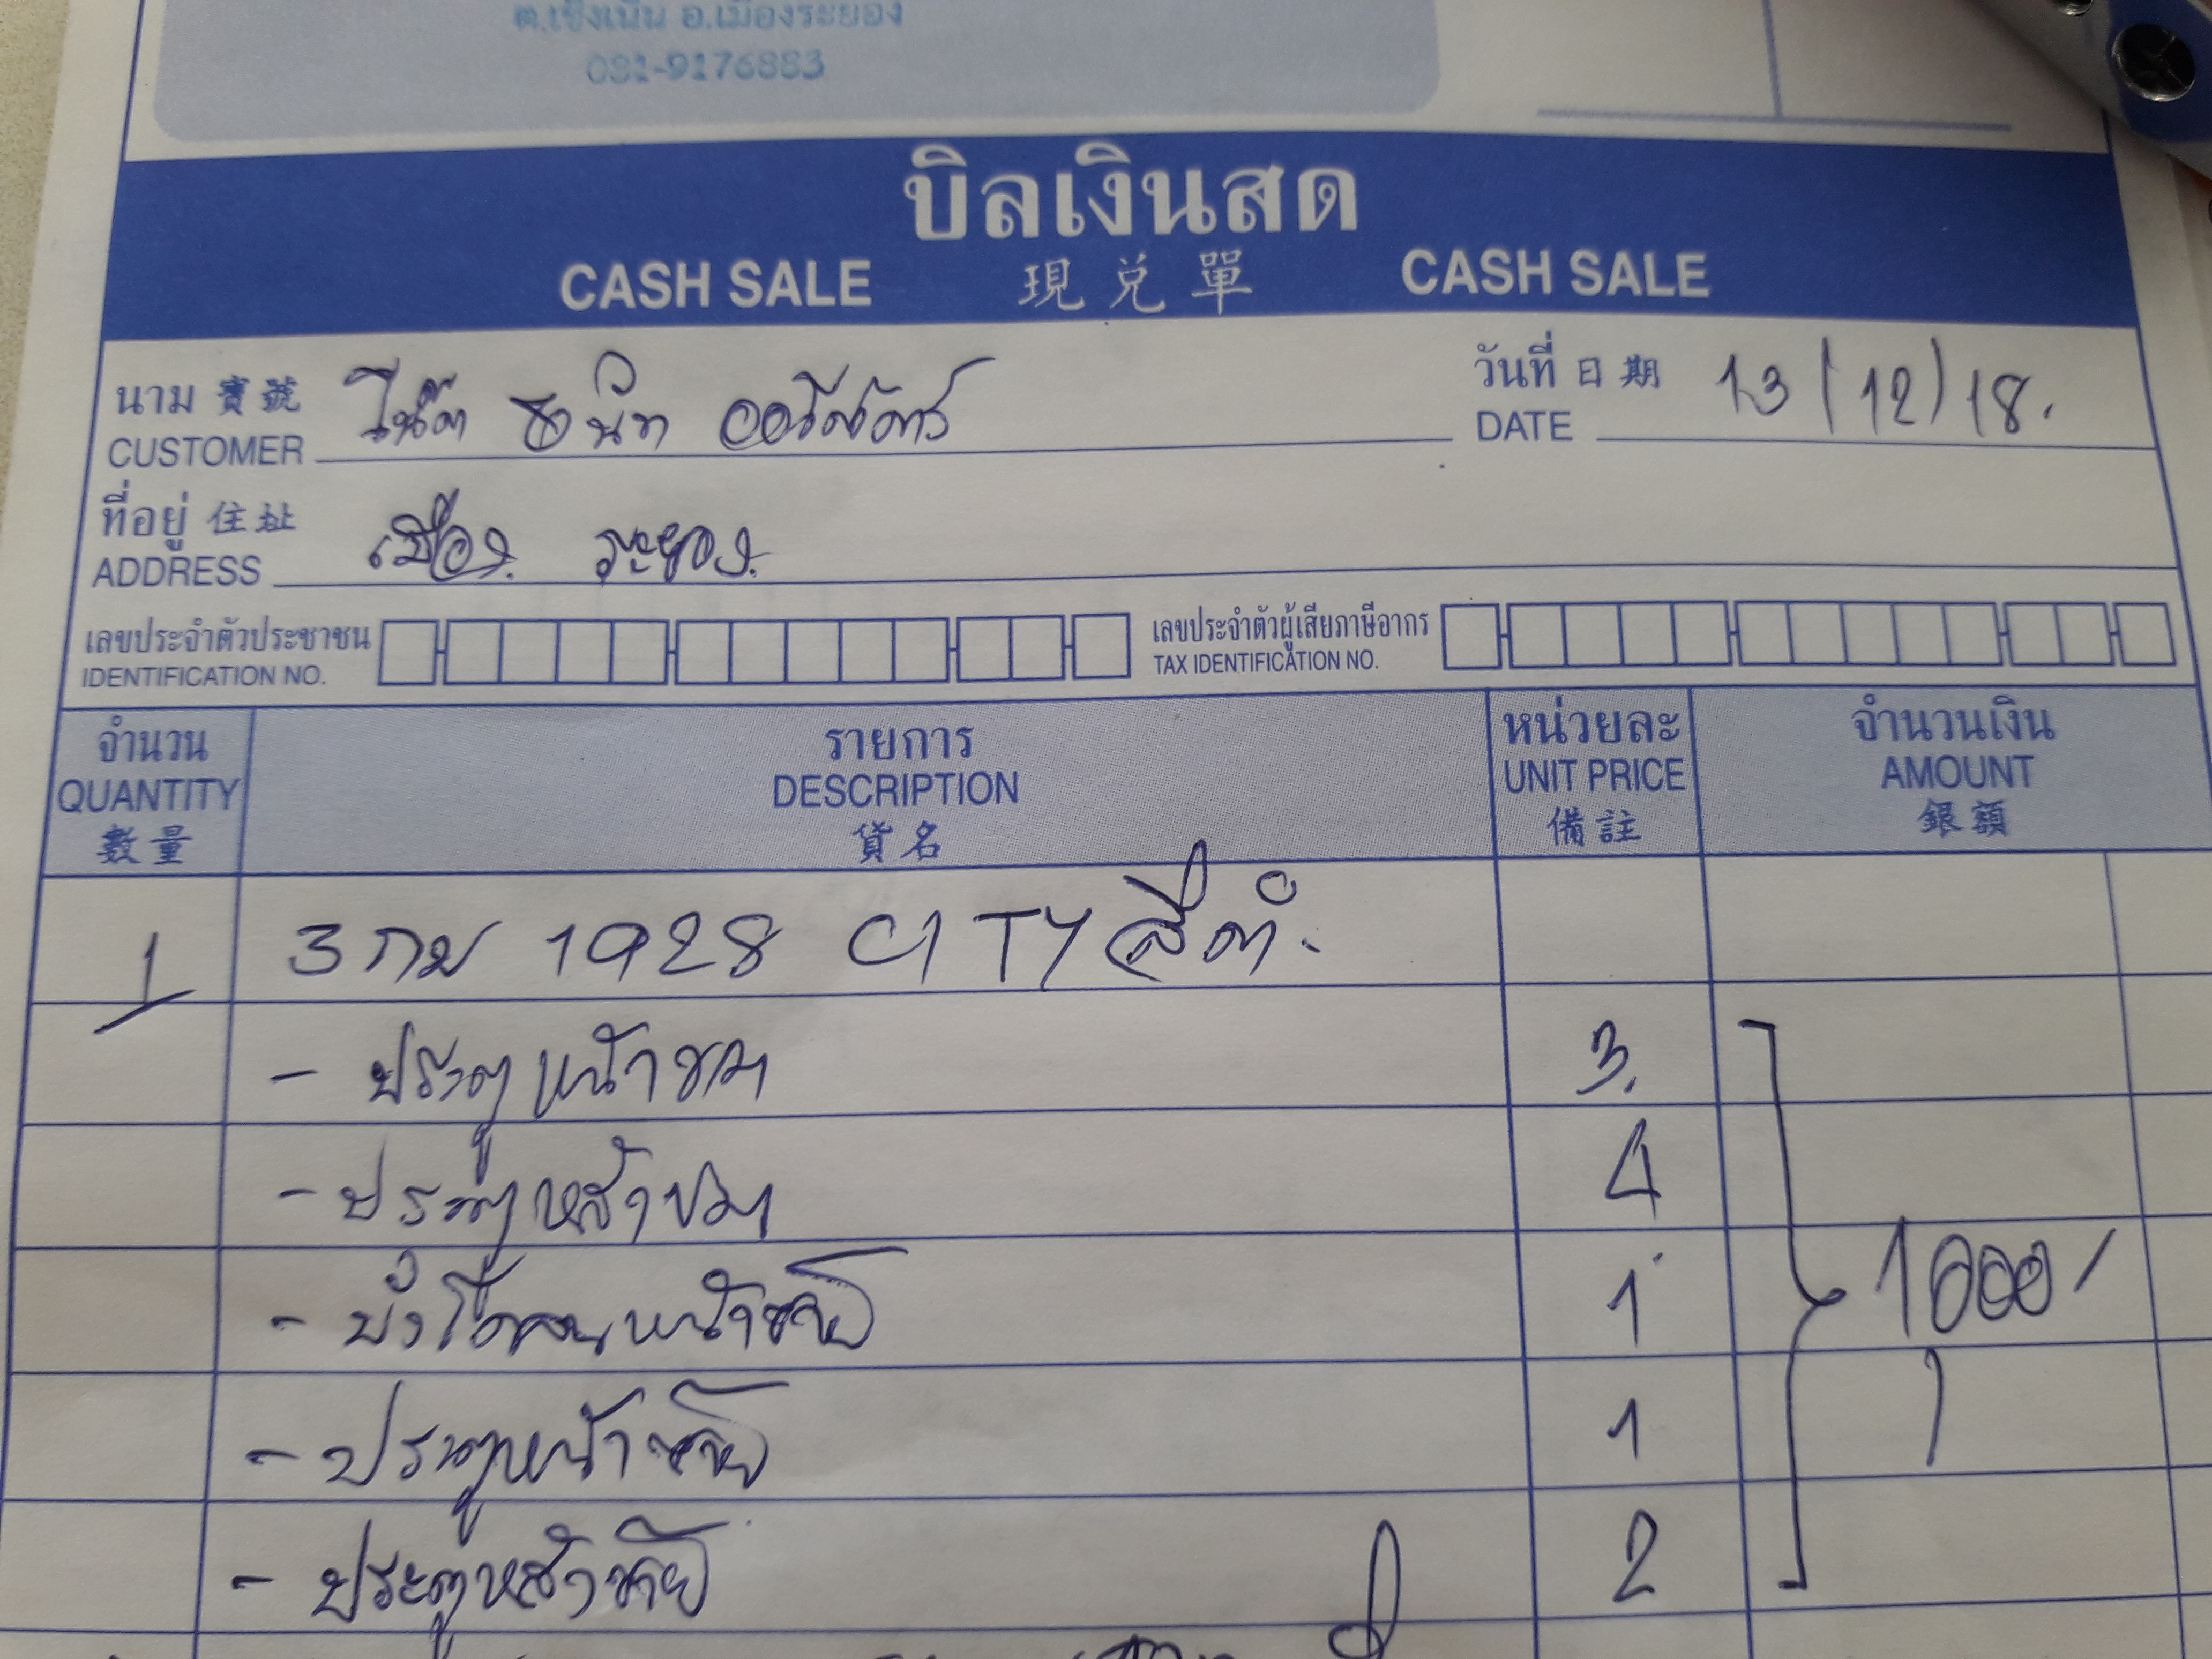 ต.เชิงเนิน อ.เมืองระยอง
081-9176883
บิลเงินสด
CASH SALE 現兑單 CASH SALE
นาม 寶號 วันที่ 日期
CUSTOMER DATE 13/12/18.
ที่อยู่ 住址 เมือง ระยอง
ADDRESS
เลขประจำตัวประชาชน เลขประจำตัวผู้เสียภาษีอากร
IDENTIFICATION NO. TAX IDENTIFICATION NO.
จำนวน รายการ หน่วยละ จำนวนเงิน
QUANTITY DESCRIPTION UNIT PRICE AMOUNT
數量 貨名 備註 銀額
1 3กม 1928 CITY สีดำ
- ประตูหน้าขวา 3
- ประตูหลังขวา 4
- บังโคลนหน้าซ้าย 1 1000/
- ประตูหน้าซ้าย 1
- ประตูหลังซ้าย 2